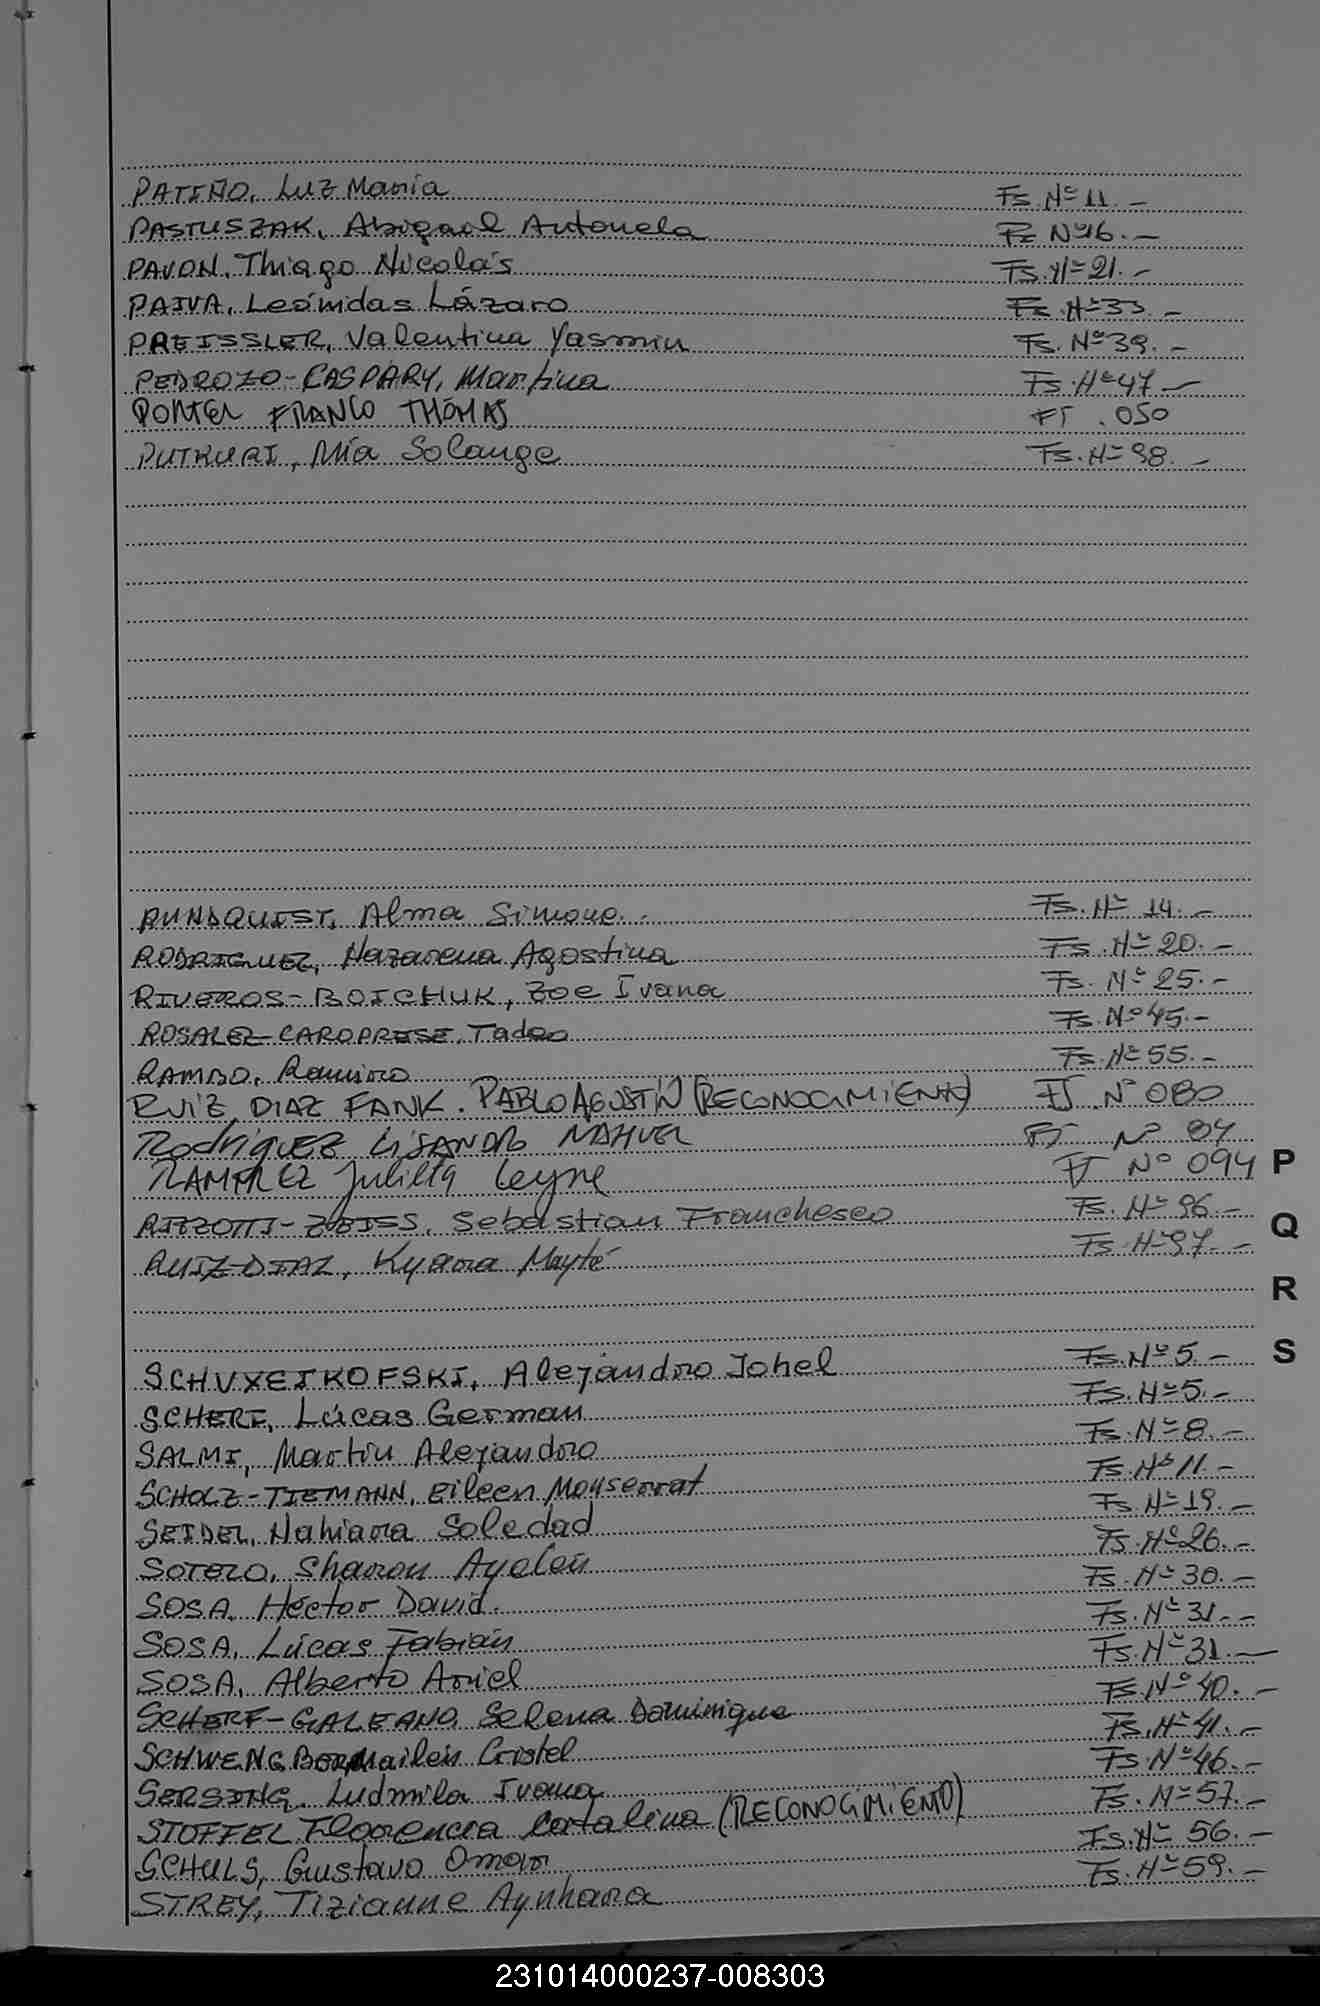 PATIÑO, Luz María Fs. Nº 11.-
PASTUSZAK, Abigael Antonela Fs Nº 16.-
PAVON, Thiago Nicolás Fs. Nº 21.-
PAIVA, Leónidas Lázaro Fs. Nº 33.-
PREISSLER, Valentina Yasmin Fs. Nº 39.-
PEDROZO-CASPARY, Martina Fs. Nº 47.-
PORTEL FRANCO THOMAS FS . 050
PUTRURI, Mía Solange Fs. Nº 98.-
RUNDQUIST, Alma Simone.- Fs. Nº 14.-
RODRIGUEZ, Nazarena Agostina Fs. Nº 20.-
RIVEROS-BOICHUK, Zoe Ivana Fs. Nº 25.-
ROSALEZ-CAROPRESE, Tadeo Fs. Nº 45.-
RAMBO, Ramiro Fs. Nº 55.-
RUIZ DIAZ FANK. PABLO AGUSTÍN (RECONOCIMIENTO) FS Nº 080
RodRiGUEZ LISANDRO NAHUEL FS Nº 84
RAMIREZ Julieta Leyne FS Nº 094
RIZZOTTI-ZEISS, Sebastian Franchesco Fs. Nº 96.-
RUIZ-DIAZ, Kyara Mayté Fs. Nº 97.-
P
Q
R
S
SCHVXEIKOFSKI, Alejandro Johel Fs. Nº 5.-
SCHERF, Lúcas German Fs. Nº 5.-
SALMI, Martin Alejandro Fs. Nº 8.-
SCHOLZ-TIEMANN, Eileen Monserrat Fs. Nº 11.-
SEIDEL, Nahiara Soledad Fs. Nº 19.-
SOTELO, Sharon Ayelén Fs. Nº 26.-
SOSA, Héctor David. Fs. Nº 30.-
SOSA, Lúcas Fabián Fs. Nº 31.-
SOSA, Alberto Ariel Fs. Nº 31.-
SCHERF-GALEANO, Selena Dominique Fs. Nº 40.-
SCHWENGBER, Mailén Cristel Fs. Nº 41.-
SERSING, Ludmila Ivana Fs. Nº 46.-
STOFFEL, Florencia Catalina (RECONOCIMIENTO) Fs. Nº 57.-
SCHULS, Gustavo Omar Fs. Nº 56.-
STREY, Tizianne Aynhara Fs. Nº 59.-
231014000237-008303